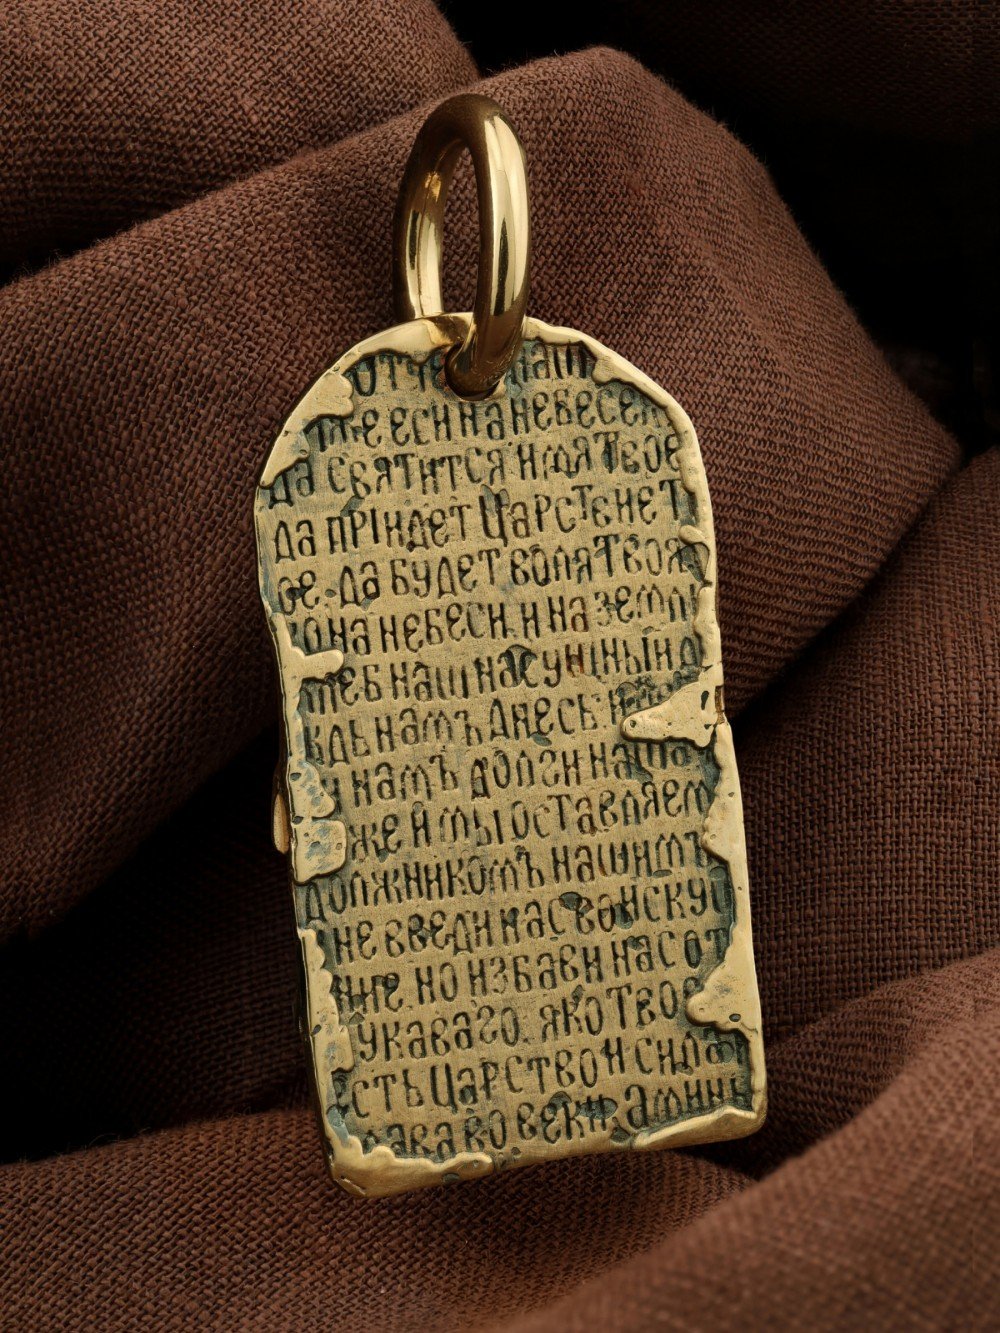 ОТЧЕ НАШ
ИЖЕ ЕСИ НА НЕБЕСЕХ
ДА СВЯТИТСЯ ИМЯ ТВОЕ
ДА ПРІИДЕТ ЦАРСТ
ОЕ. ДА БУДЕТ ВОЛЯ ТВОЯ
НА НЕБЕСИ. И НА ЗЕМЛ
ЛЕБ НАШ НАСУЩНЫЙ Д
ЖДЬ НАМЪ ДНЕСЬ:
И НАМЪ ДОЛГИ НАША
ЖЕ И МЫ ОСТАВЛЯЕМ
ДОЛЖНИКОМЪ НАШИМЪ
НЕ ВВЕДИ НАС ВО ИСКУШ
НИЕ. НО ИЗБАВИ НАС ОТ
УКАВАГО. ЯКО ТВОЕ
ЕСТЬ ЦАРСТВО И СИЛА
ЛАВА ВО ВЕКИ. АМИНЬ